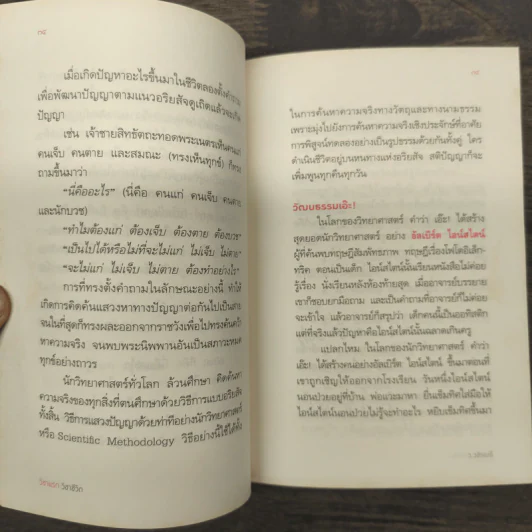 ๗๔
เมื่อเกิดปัญหาอะไรขึ้นมาในชีวิตลองตั้งคำถาม
เพื่อพัฒนาปัญญาตามแนวอริยสัจดูเถิดแล้วจะเกิด
ปัญญา
เช่น เจ้าชายสิทธัตถะทอดพระเนตรเห็นคนแก่
คนเจ็บ คนตาย และสมณะ (ทรงเห็นทุกข์) ก็ทรง
ถามขึ้นมาว่า
"นี่คืออะไร" (นี่คือ คนแก่ คนเจ็บ คนตาย
และนักบวช)
"ทำไมต้องแก่ ต้องเจ็บ ต้องตาย ต้องบวช"
"เป็นไปได้หรือไม่ที่จะไม่แก่ ไม่เจ็บ ไม่ตาย"
"จะไม่แก่ ไม่เจ็บ ไม่ตาย ต้องทำอย่างไร"
การที่ทรงตั้งคำถามในลักษณะอย่างนี้ ทำให้
เกิดการคิดค้นแสวงหาทางปัญญาต่อกันไปเป็นสาย
จนในที่สุดก็ทรงผละออกจากราชวังเพื่อไปทรงค้นคว้า
หาความจริง จนพบพระนิพพานอันเป็นสภาวะหมด
ทุกข์อย่างถาวร
นักวิทยาศาสตร์ทั่วโลก ล้วนศึกษา คิดค้นหา
ความจริงของทุกสิ่งที่ตนศึกษาด้วยวิธีการแบบอริยสัจ
ทั้งสิ้น วิธีการแสวงปัญญาด้วยท่าทีอย่างนักวิทยาศาสตร์
หรือ Scientific Methodology วิธีอย่างนี้ใช้ได้ทั้ง
วิชาแรก วิชาชีวิต
๗๕
ในการค้นหาความจริงทางวัตถุและทางนามธรรม
เพราะมุ่งไปยังการค้นหาความจริงเชิงประจักษ์ที่อาศัย
การพิสูจน์ทดลองอย่างเป็นรูปธรรมด้วยกันทั้งคู่ ใคร
ดำเนินชีวิตอยู่บนหนทางแห่งอริยสัจ สติปัญญาก็จะ
เพิ่มพูนทุกคืนทุกวัน
วัฒนธรรมเอ๊ะ!
ในโลกของวิทยาศาสตร์ คำว่า เอ๊ะ! ได้สร้าง
สุดยอดนักวิทยาศาสตร์ อย่าง อัลเบิร์ต ไอน์สไตน์
ผู้ที่ค้นพบทฤษฎีสัมพัทธภาพ ทฤษฎีเรื่องโฟโตอิเล็ก-
ทริค ตอนเป็นเด็ก ไอน์สไตน์นั้นเรียนหนังสือไม่ค่อย
รู้เรื่อง นั่งเรียนหลังห้องท้ายสุด เมื่ออาจารย์บรรยาย
เขาก็ชอบยกมือถาม และเป็นคำถามที่อาจารย์ก็ไม่ค่อย
จะเข้าใจ แล้วอาจารย์ก็สรุปว่า เด็กคนนี้เป็นออทิสติก
แต่ที่จริงแล้วปัญหาคือไอน์สไตน์นั้นฉลาดเกินครู
แปลกไหม ในโลกของนักวิทยาศาสตร์ คำว่า
เอ๊ะ! ได้สร้างคนอย่างอัลเบิร์ต ไอน์สไตน์ ขึ้นมาตอนที่
เขาถูกเชิญให้ออกจากโรงเรียน วันหนึ่งไอน์สไตน์
นอนป่วยอยู่ที่บ้าน พ่อแวะมาหา ยื่นเข็มทิศใส่มือให้
ไอน์สไตน์นอนป่วยไม่รู้จะทำอะไร หยิบเข็มทิศขึ้นมา
ว.วชิรเมธี